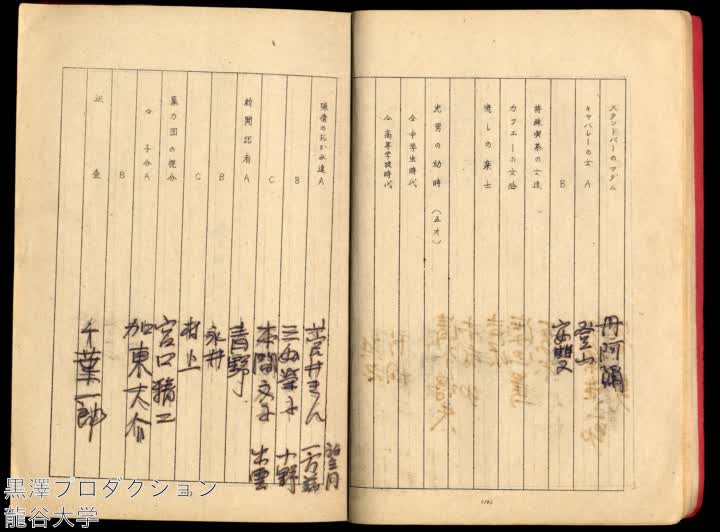 スタンドバーのマダム 丹阿彌
キャバレーの女 A 登山
B 安雙
特殊喫茶の女達
カフエーの女給
流しの楽士
光男の幼時 (五才)
仝 中学生時代
仝 高等学校時代
陳情のおかみ達 A 菅井きん 望月
B 三好榮子 一万慈 小野
C 本間文子 出雲
新聞記者 A 青野
B 永井
C 村上
暴力団の親分 宮口精二
〃 子分A 加東大介
B
巡査 千葉一郎
黒澤プロダクション
龍谷大学